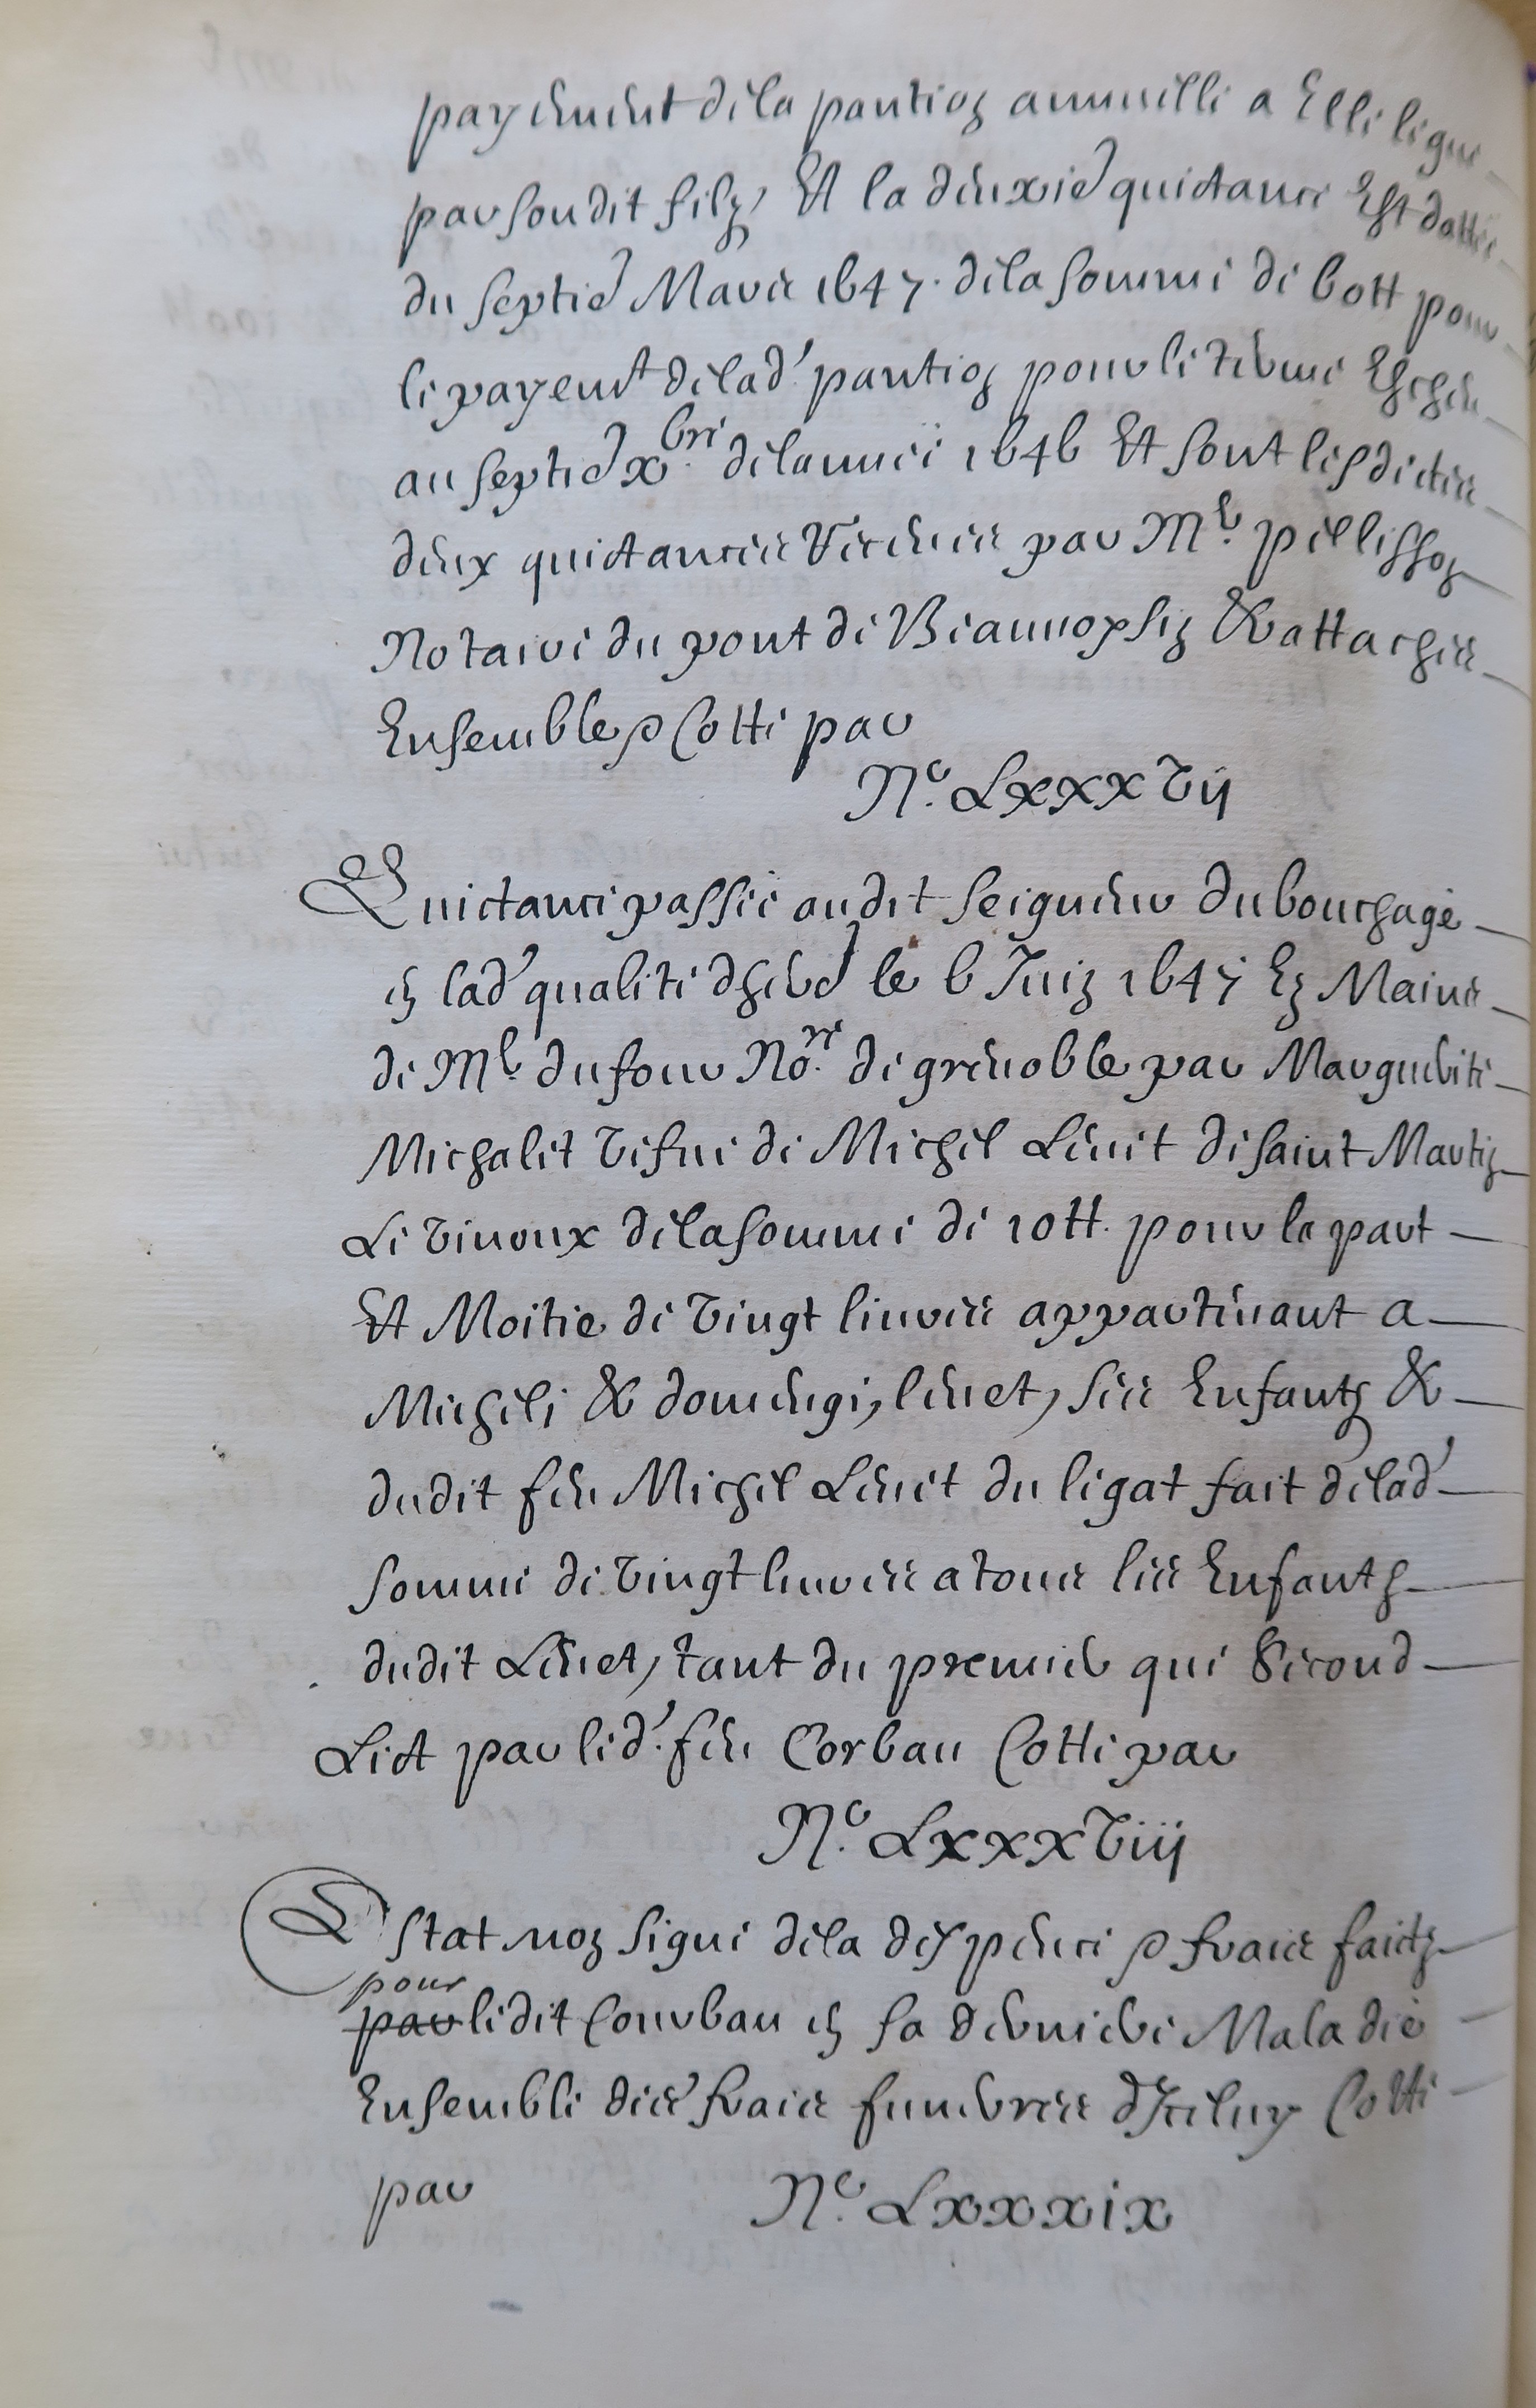 payement de la pention annuelle a Elle legue
par son dit filz, Et la deuxie quictance Est dattee
du septie Mars 1647. de la somme de 6o# pour
le payemt de lad' pention pour le terme Escheu
au septie xbre. de lannee 1646 Et sont lesdictes
deux quictances Receues par Me. pellisson
Notaire du pont de Beauvoysin & attachees
Ensemble, Cotte par
No. Lxxxvij
Quictance passee audit Seigneur du bouchage
en lad' qualite dherer le 6 Juin 1647 Ez Mains
de Me. dufour Nore. de grenoble par Marguerite
Michalet vefve de Michel Levet de saint Martin
Le vinoux de la somme de 10#. pour la part
Et Moitie de vingt livres appartenant a
Michele & domenge, levet, ses Enfantz &
dudit feu Michel Levet du legat fait de lad'
somme de vingt livres a tous les Enfantz
dudit Levet, tant du premier que Second
Lict par led'. feu Corbau Cotte par
No. Lxxxviij
Estat non signe de la despence & fraiz faictz
pour
par ledit Courbau en sa derniere Maladie
Ensemble des fraiz funebres dIceluy Cotte
par No. Lxxxix